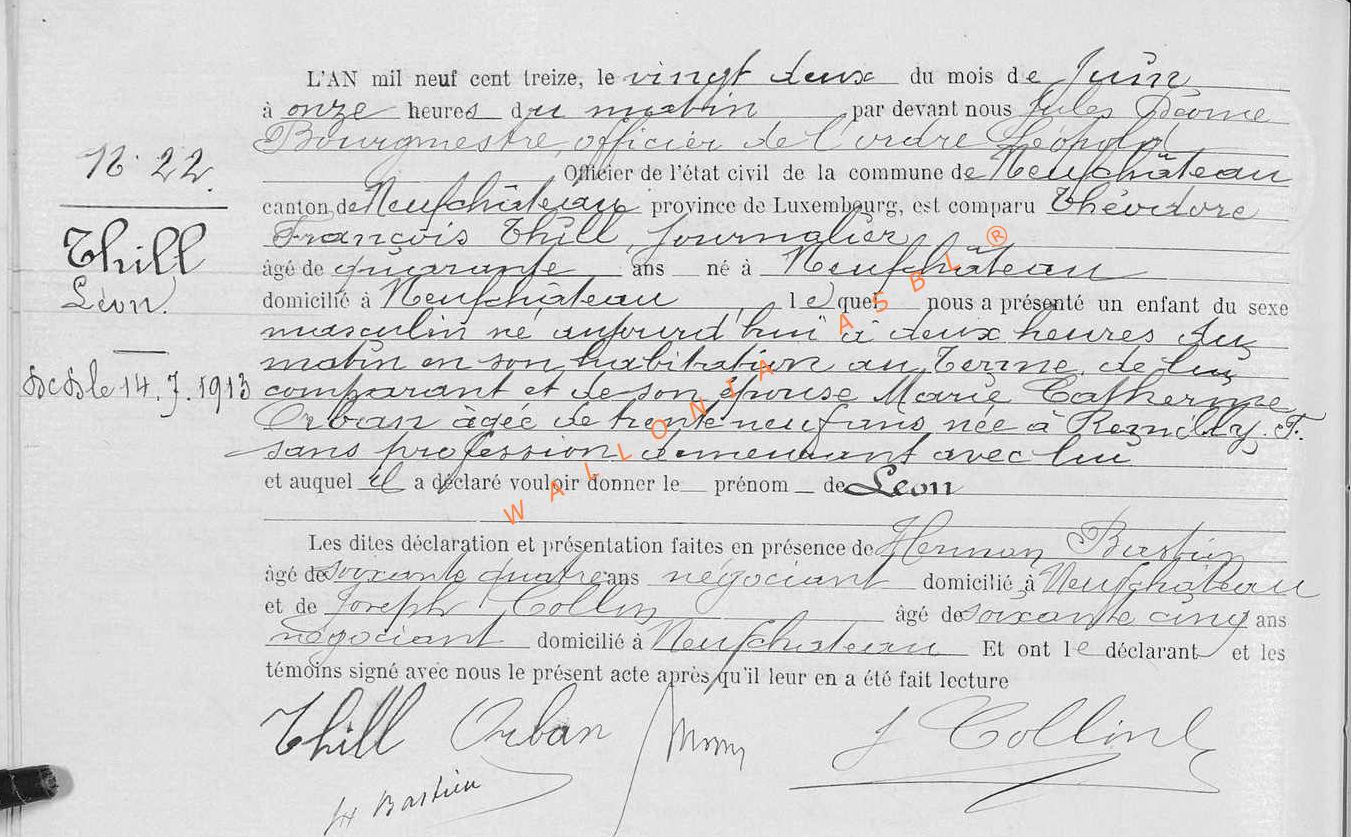 L'AN mil neuf cent treize, le vingt deux du mois de Juin
à onze heures du matin par devant nous Jules
Bourgmestre, officier de l'ordre Léopold
N° 22.
Officier de l'état civil de la commune de Neufchâteau
canton de Neufchâteau province de Luxembourg, est comparu Théodore
François Thill, journalier,
Thill
Léon
âgé de quarante ans né à Neufchâteau
domicilié à Neufchâteau, lequel nous a présenté un enfant du sexe
masculin né aujourd'hui à deux heures du
matin en son habitation au Terme, de lui
Dcd le 14.7.1913
comparant et de son épouse Marie Catherine
Orban âgée de trente neuf ans, née à
sans profession demeurant avec lui
et auquel il a déclaré vouloir donner le prénom de Léon
WALLONIA ASBL ®
Les dites déclaration et présentation faites en présence de Bastien
âgé de soixante quatre ans négociant domicilié à Neufchâteau
et de Joseph Collin âgé de soixante cinq ans
négociant domicilié à Neufchateau Et ont le déclarant et les
témoins signé avec nous le présent acte après qu'il leur en a été fait lecture
Thill Orban J Collin
H Bastien